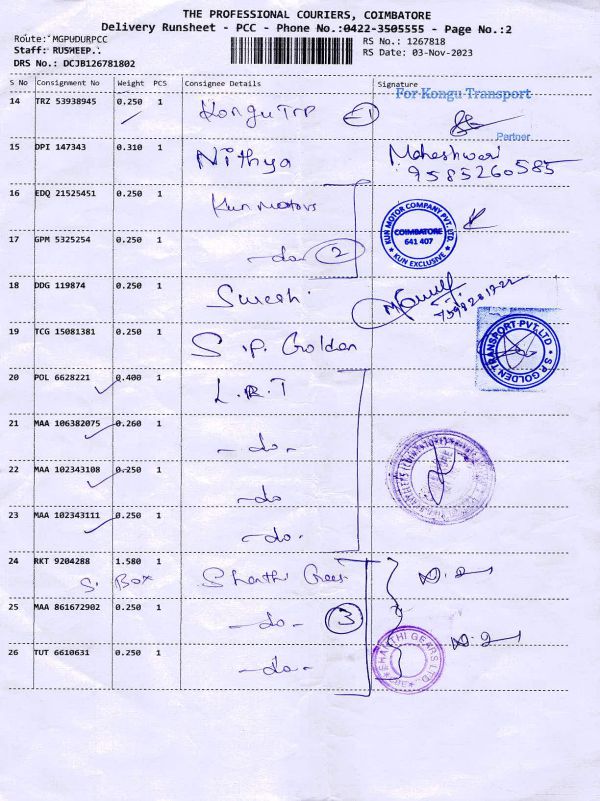 THE PROFESSIONAL COURIERS, COIMBATORE
Delivery Runsheet - PCC - Phone No.:0422-3505555 - Page No.:2
Route: MGPUDURPCC
RS No.: 1267818
Staff: RUSHEEP..
RS Date: 03-Nov-2023
DRS No.: DCJB126781802
S No Consignment No Weight PCS Consignee Details Signature
For Kongu Transport
14 TRZ 53938945 0.250 1 Kongu TPP 1
Partner
15 DPI 147343 0.310 1 Nithya Maheshwari
9585260585
16 EDQ 21525451 0.250 1 Kun Motors
KUN MOTOR COMPANY PVT. LTD.
COIMBATORE
641 407
* KUN EXCLUSIVE *
17 GPM 5325254 0.250 1 -do- 2
18 DDG 119874 0.250 1 Suresh
19 TCG 15081381 0.250 1 S.P. Golden
S P GOLDEN TRANSPORT PVT.LTD
20 POL 6628221 0.400 1 L.R.T
21 MAA 106382075 0.260 1 -do-
22 MAA 102343108 0.250 1 -do
23 MAA 102343111 0.250 1 -do.
24 RKT 9204288 1.580 1 Shanthi Gears
S. Box
25 MAA 861672902 0.250 1 -do- 3
26 TUT 6610631 0.250 1 -do-
SHANTHI GEARS LTD.